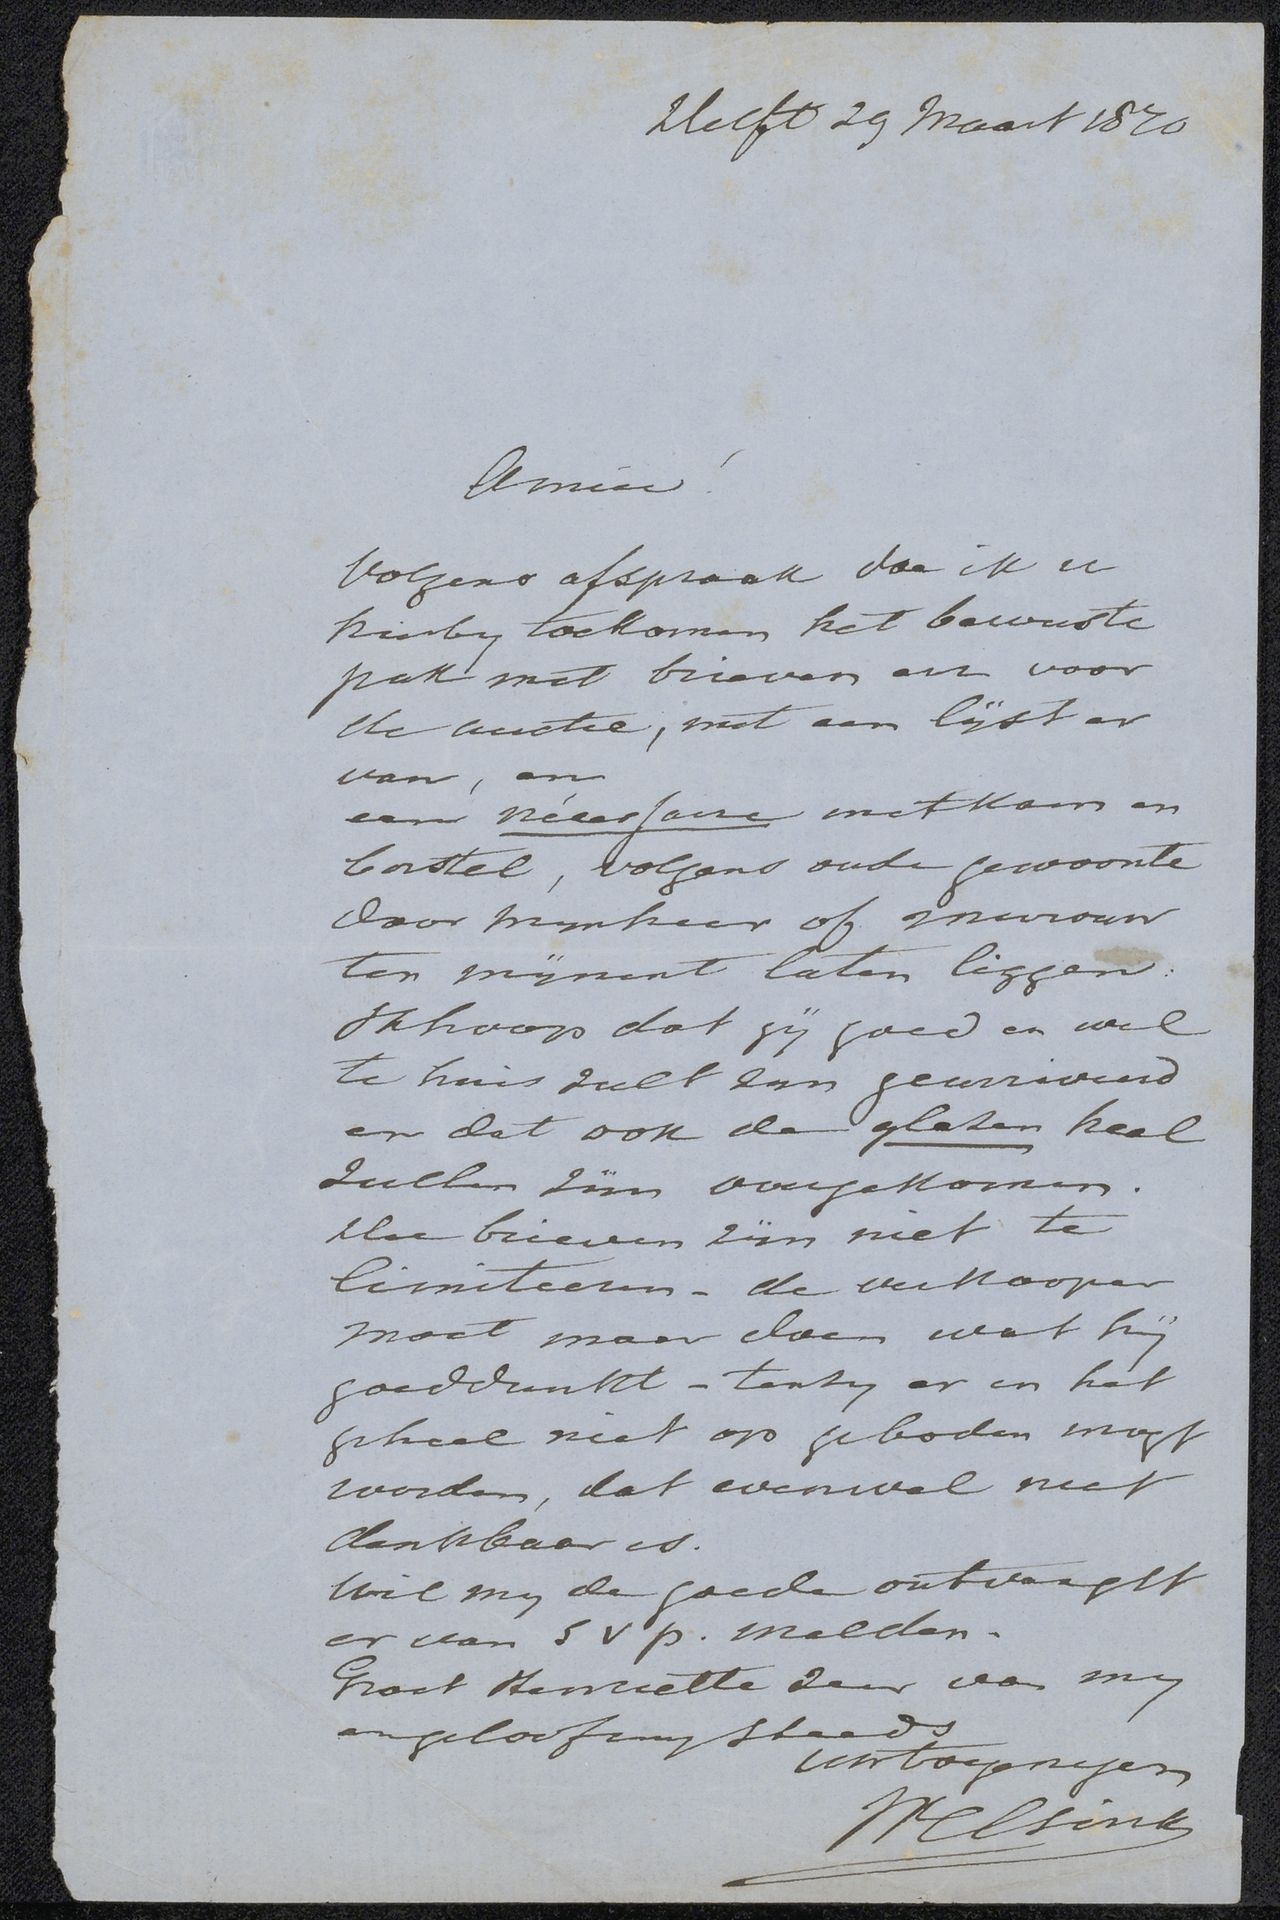 Delft 29 Maart 1870
Amice!
Volgens afspraak doe ik u
hierby toekomen het bewuste
pak met brieven enz voor
de auctie, met een lijst er
van, en
een nécessaire met kam en
borstel, volgens oude gewoonte
door mynheer of mevrouw
ten mijnent laten liggen.
Ik hoop dat gij goed en wel
te huis zult zyn gearriveerd
en dat ook de glazen heel
zullen zijn overgekomen.
De brieven zijn niet te
limiteeren - de verkooper
moet maar doen wat hij
goeddunkt - tenzy er in het
geheel niet op geboden mogt
worden, dat evenwel niet
denkbaar is.
Wil my de goede ontvangst
er van s v p. melden.
Groet Henriette zeer van my
en geloof my steeds
uw toegenegen
Elsink